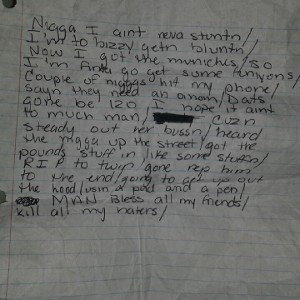 Nigga I aint neva stuntn/
I'm to bizzy getn bluntn/
Now I got the munichies/so
I'm finna go get some funyons/
Couple of niggas hit my phone/
sayn they need an onion/Dats
gone be 120 I hope it aint
to much man/ Cuzn
steady out her bussn/heard
the nigga up the street/got the
pounds stuff in/like some stuffn/
RIP to twin gone rep him
to the end/going to get up out
the hood/usin a pad and a pen/
MAN Bless all my friends/
kill all my haters/